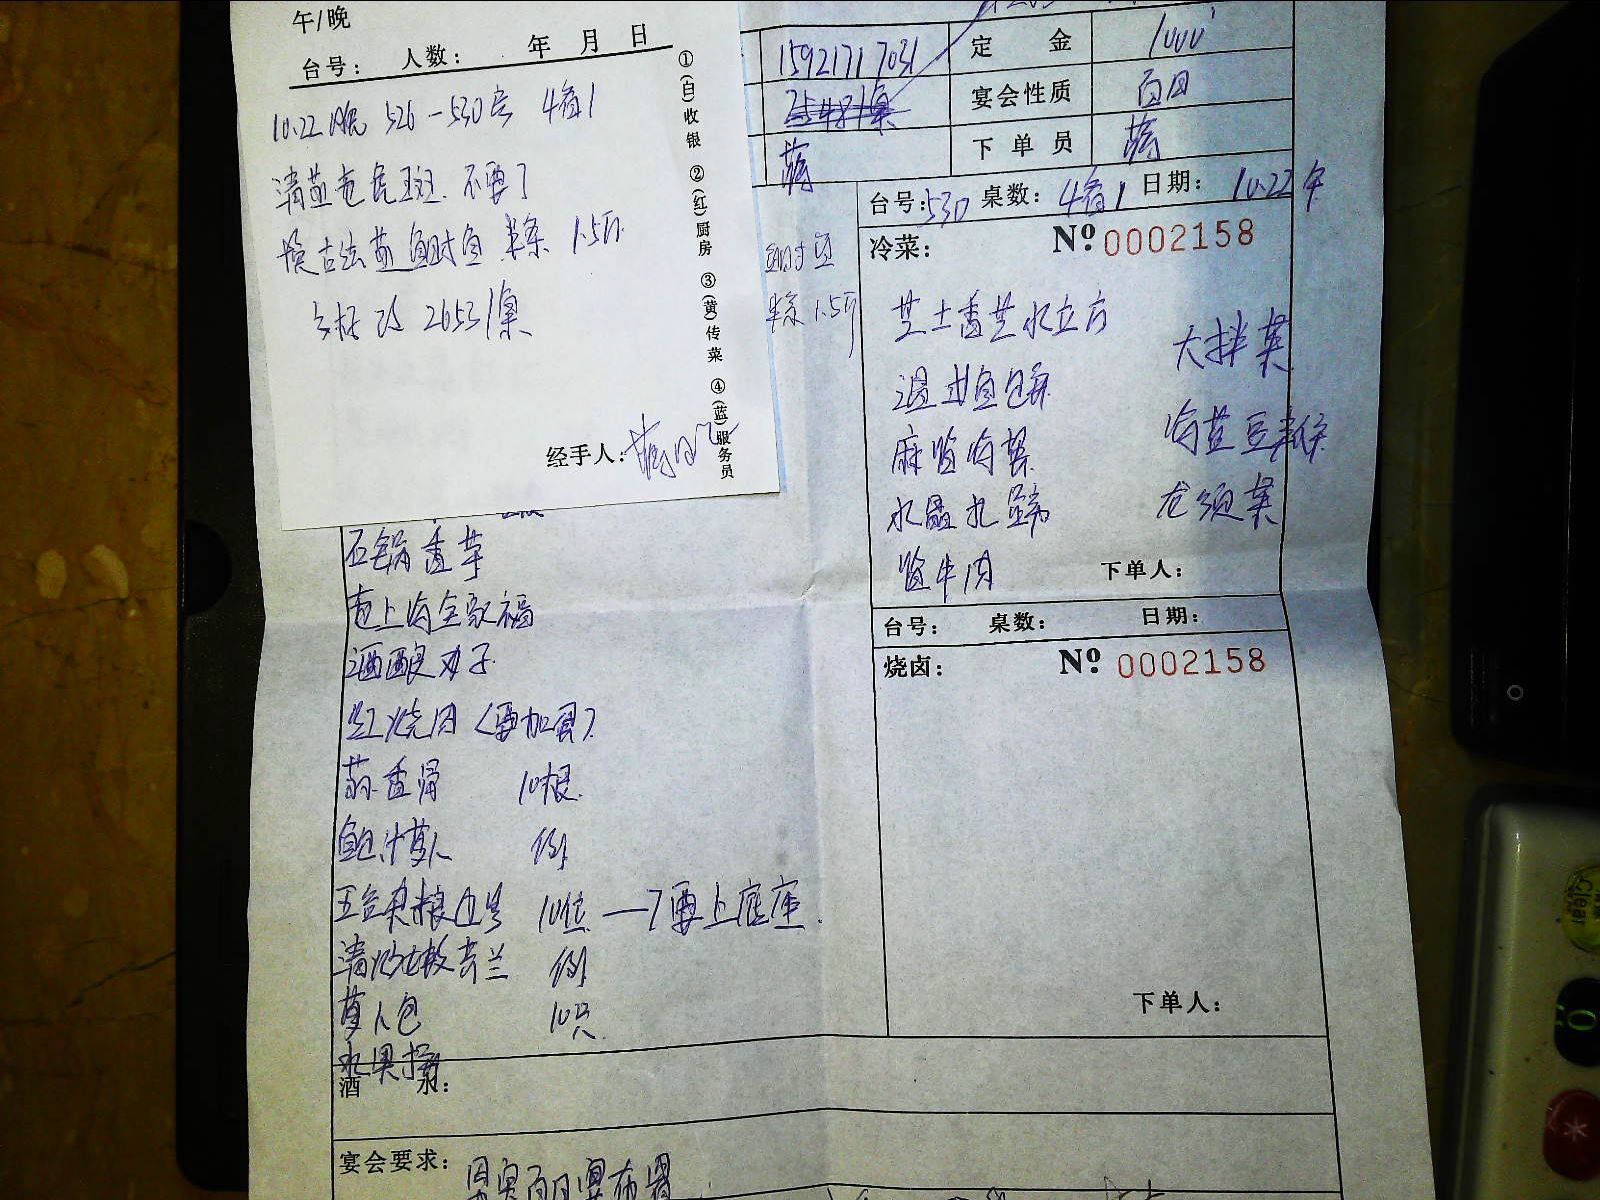 午/晚
台号： 人数： 年 月 日
10.22 晚 526-530号 4备1
清蒸老虎斑 不要了
换古法蒸鲥鱼 半条 1.5斤
价格改 2653/桌
经手人：
①(白)收银 ②(红)厨房 ③(黄)传菜 ④(蓝)服务员
15921717031
定 金 1000
宴会性质 百日
下 单 员 蒋
蒋
鲥鱼
半条 1.5斤
台号：530 桌数：4备1 日期：10.22 午
冷菜： Nº 0002158
芝士香芒水立方
大拌菜
温拌鱼
海苔豆
麻酱海蜇
水晶扎蹄
龙须菜
酱牛肉
下单人：
台号： 桌数： 日期：
烧卤： Nº 0002158
下单人：
石锅香芋
老上海全家福
酒酿圆子
红烧肉（要加蛋）
蒜香骨 10根
鲍汁萝卜 例
五谷杂粮 10位 —7要上底座
清炒芥兰 例
萝卜包 10只
水果拼
酒 水：
宴会要求： 百日宴布置